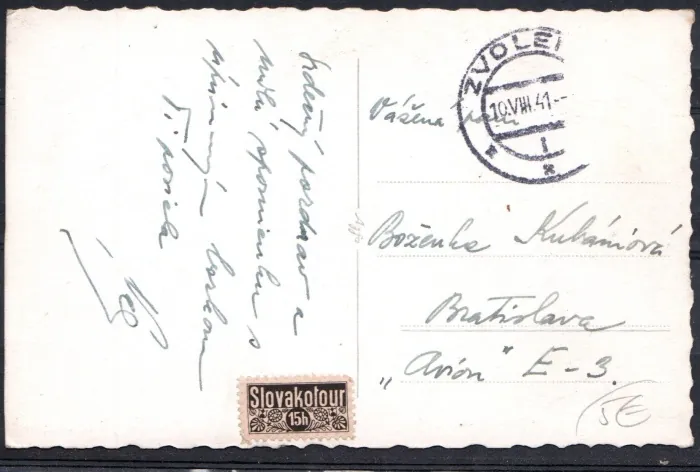 Srdečný pozdrav a
milú spomienku s
úprimným bozkom
Ti posiela
ZVOLEN
10.VIII.41.--
1
Vážená pani
Boženka Kubániová
Bratislava
„Avion" E-3.
Slovakotour
15h
5€